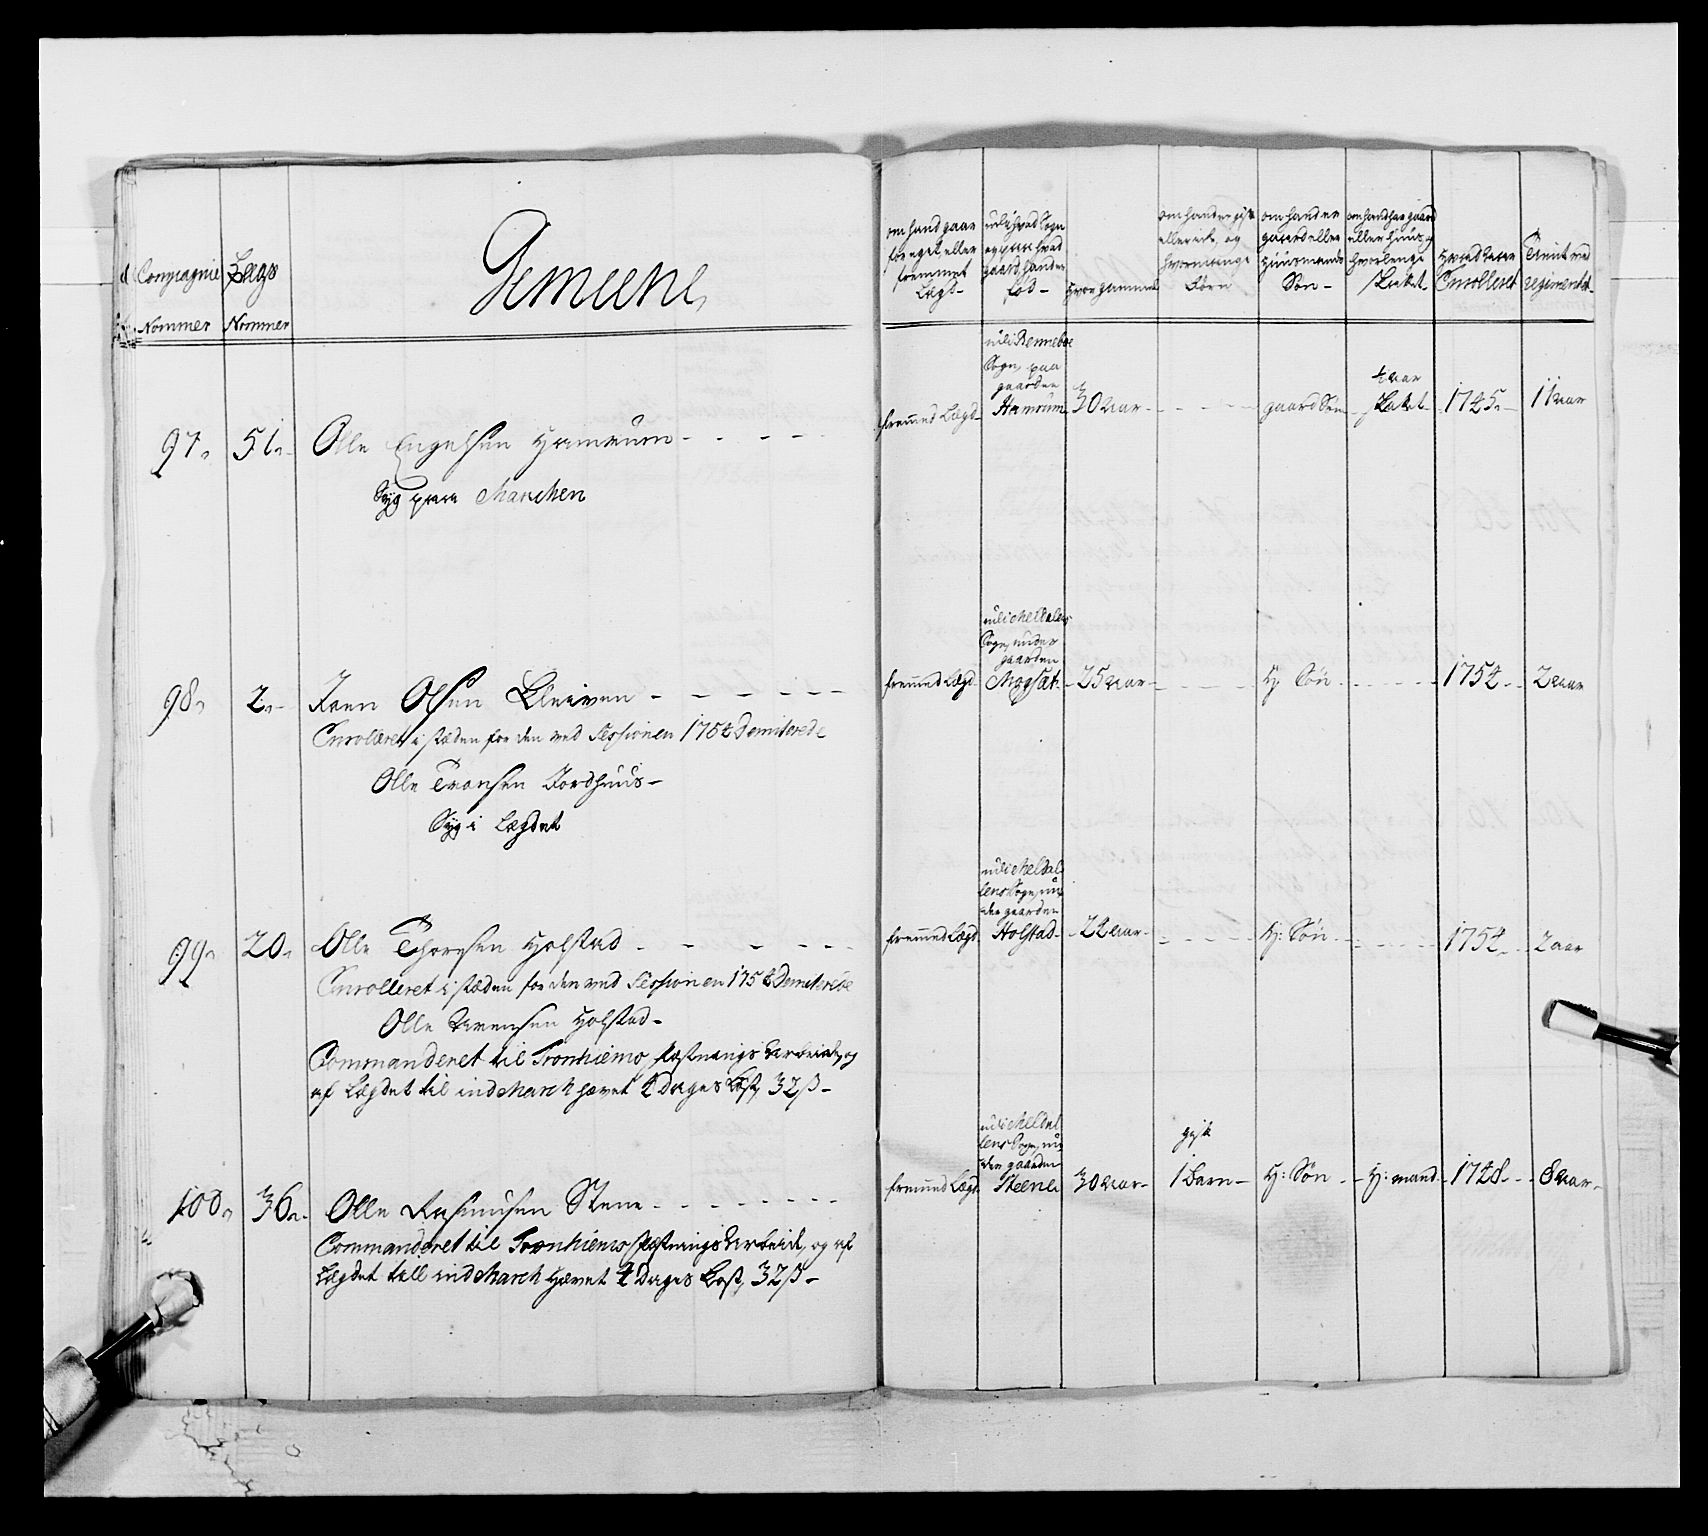 Compagnie Nommer
Lægs Nommer
Gemeene,
om hand gaar
for eget eller
fremmet
Lægd-
udi hvad Sogn
og paa hvad
gaard hand er
fød-
hvor gammel
om hand er gift
eller eik, og
hvormange
Børn
om hand er
gaard eller
Huusmands
Søn-
om hand har gaard
eller Huus, og
hvorlenge
/:bruket
hvad Aar
Enrolleret
Tient ved
regimentet-
97, 51,- Olle Engelsen Hamrum - - - -
Syg paa Marchen
fremmed Lægd-
udi Renneboe
Sogn, paa
gaarden
Hamrum
30 aar- - - - gaard Søn-
1/2 aar
/:bruket-
1745,- 11 aar
98, 2,- Joen Olsen Kleiven - - - - - -
Enrolleret i stæden for den ved Sessionen 1754 Demiterede
Olle Tronsen Jordhuus-
Syg i Lægdet
fremmed Lægd
udi Meldalens
Sogn, under
gaarden
Mogset-
25 aar- - - - H: Søn- - - - 1754- 2 aar
99, 20,- Olle Thoresen Holstad - - - - - -
Enrolleret i stæden for den ved Sessionen 1754 Demiterede
Olle Arensen Holstad-
Commanderet til Tronhiems fæstnings Arbeide, og
af Lægdet til ind March hævet 4 Dages Kost, 32 ß-
fremmed Lægd
udi Meldal
lens Sogn, un
der gaarden
Holstad-
-22 aar- - - - H: Søn- - - - 1754- 2 aar
100, 36,- Olle Rasmusen Stene - - - - - -
Commanderet til Tronhiems fæstnings Arbeide, og af
Lægdet till ind March Hævet 4 Dages Kost, 32 ß-
fremmed Lægd
udi Meldal
lens Sogn, un
der gaarden
Steene
30 aar-
gift
1 Barn- H: Søn- H: mand- 1748- 8 aar-